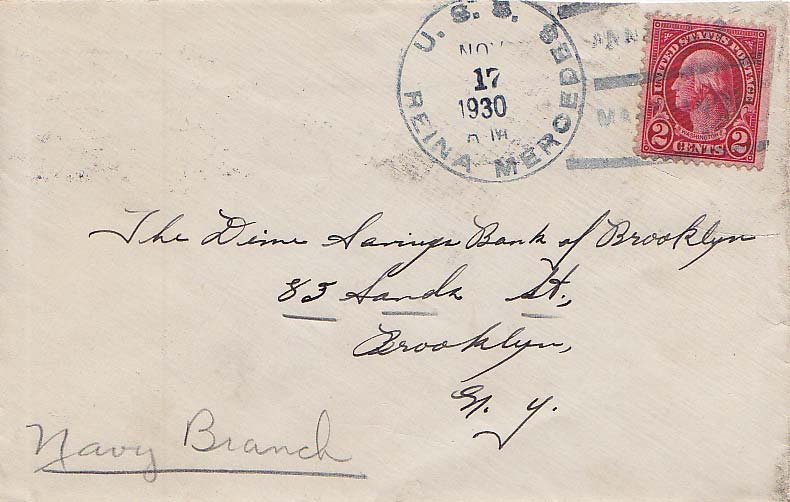 U. S. S. REINA MERCEDES
NOV
17
1930
A M
ANN
MA
UNITED STATES POSTAGE
WASHINGTON
2 CENTS 2
The Dime Savings Bank of Brooklyn
85 Sands St.,
Brooklyn,
N. Y.
Navy Branch